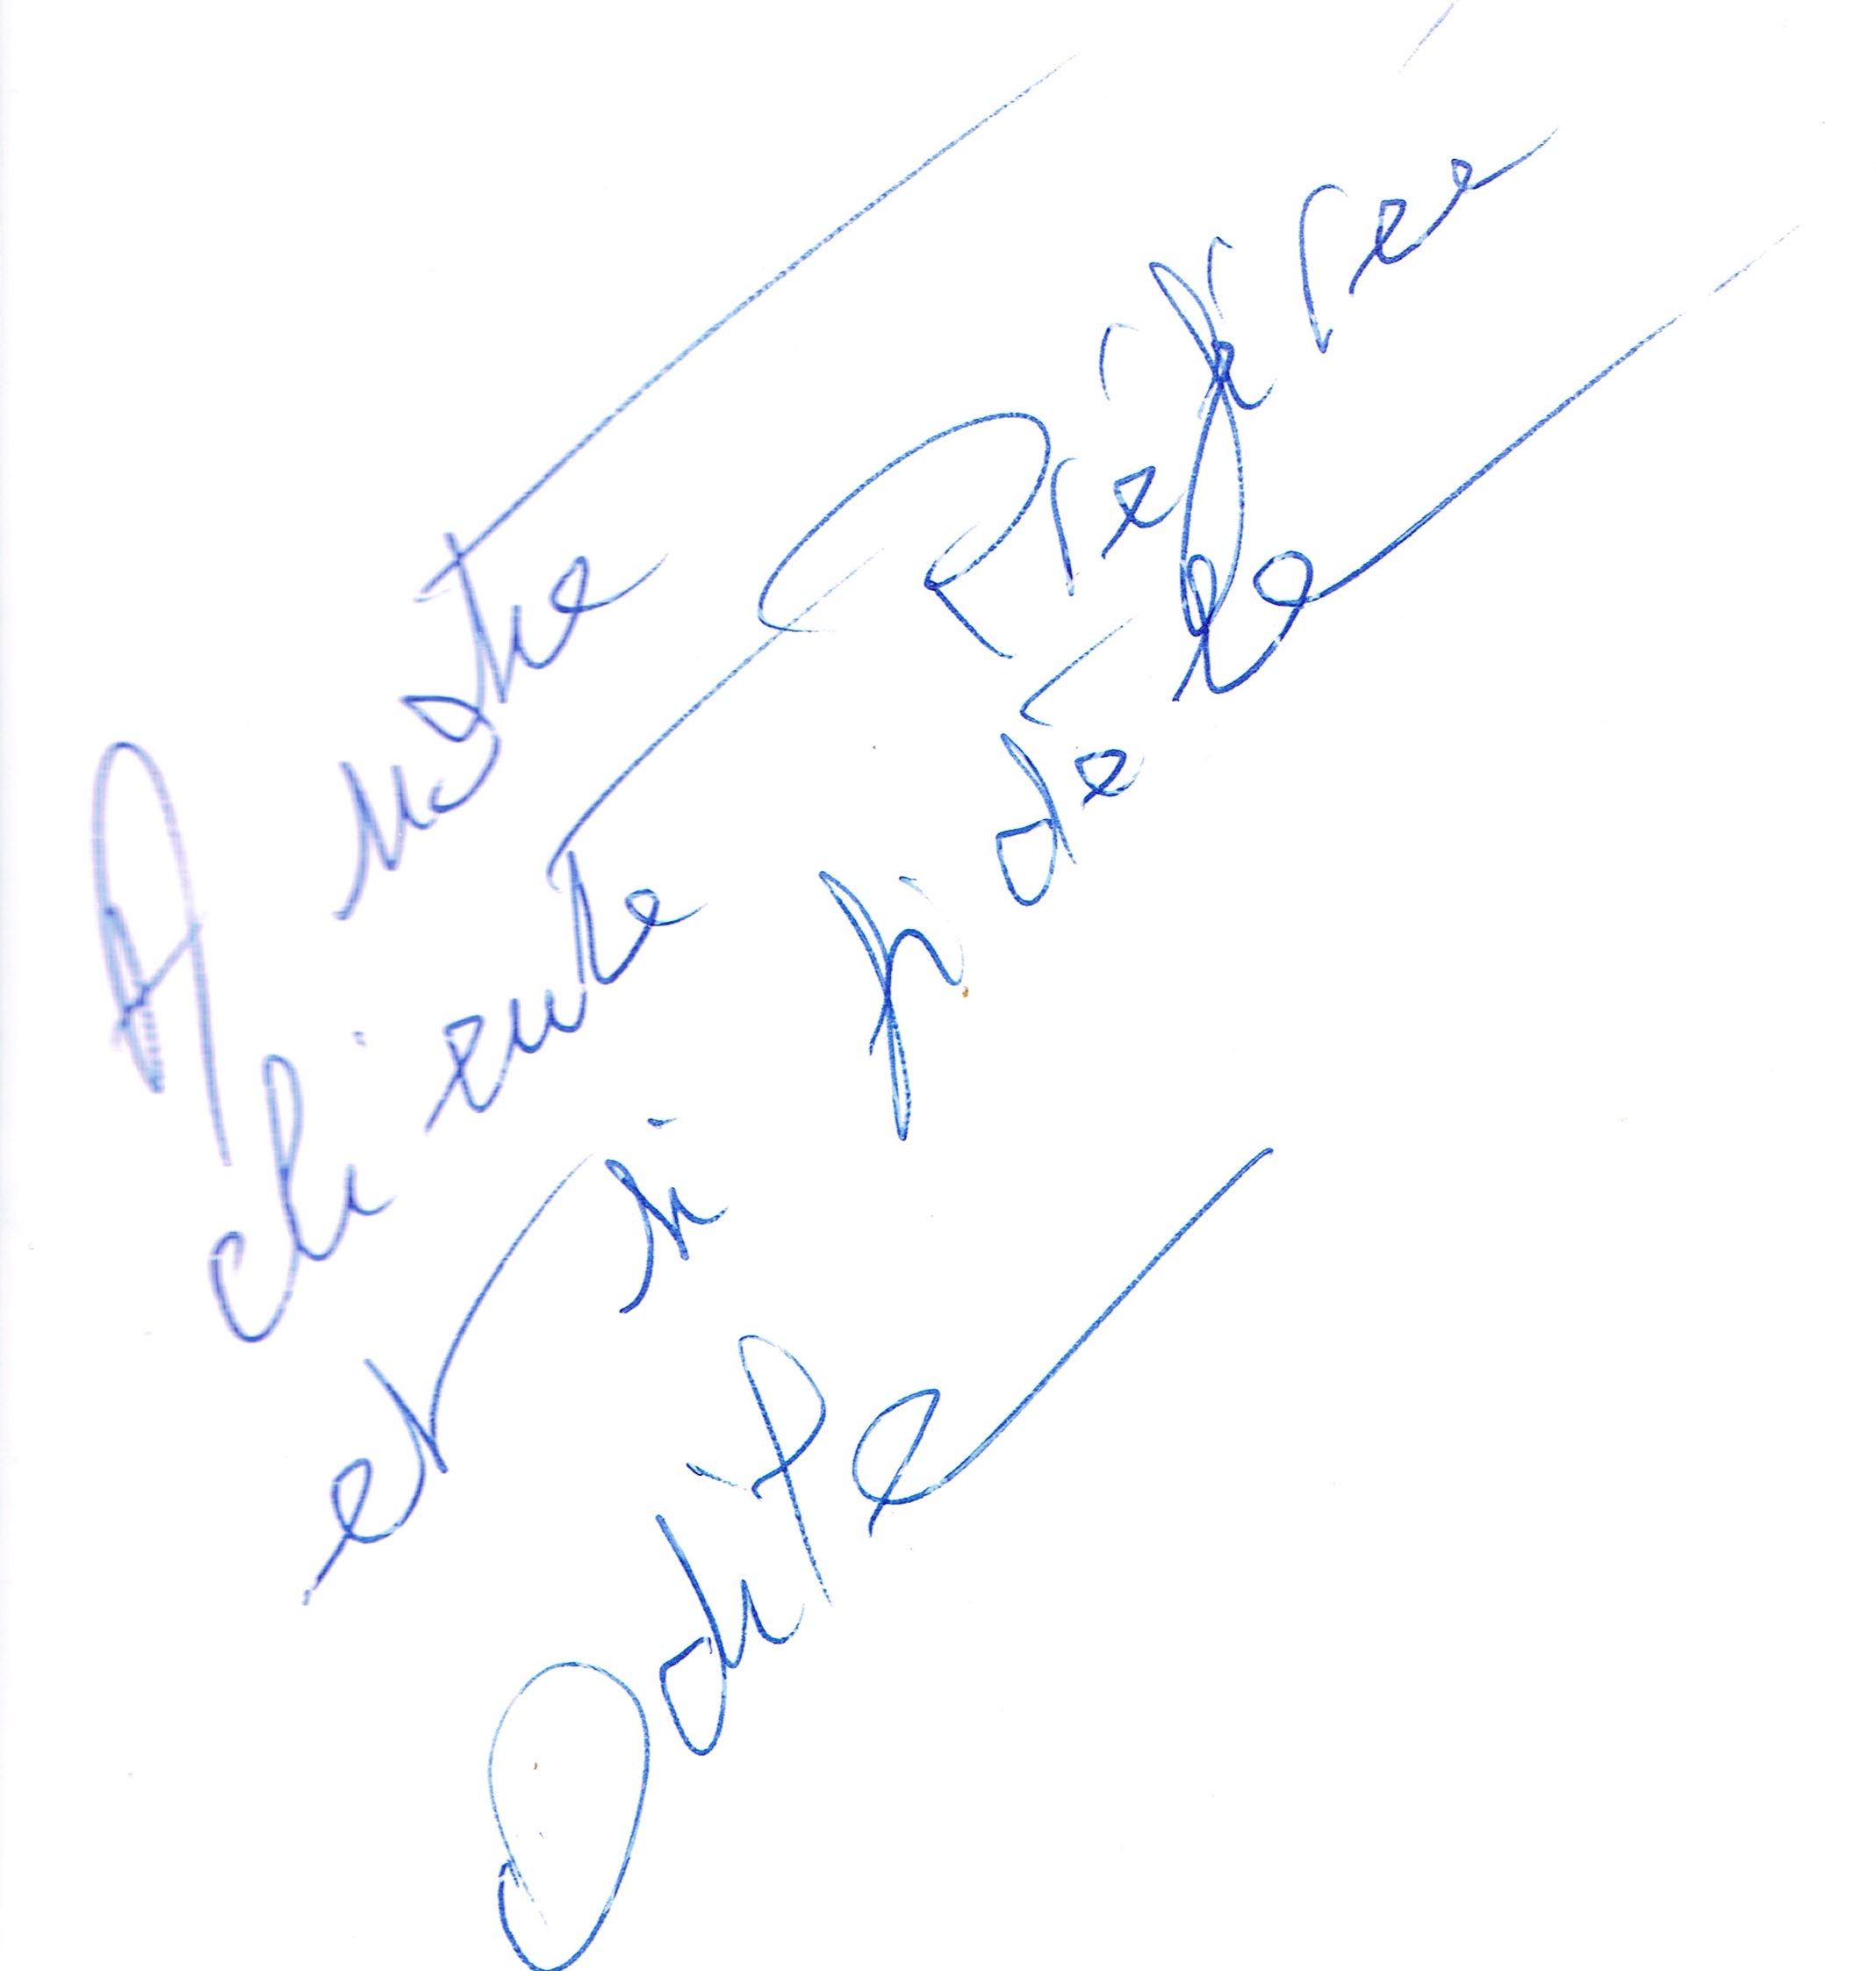 A notre
cliente Préférée
et si fidèle
Odile